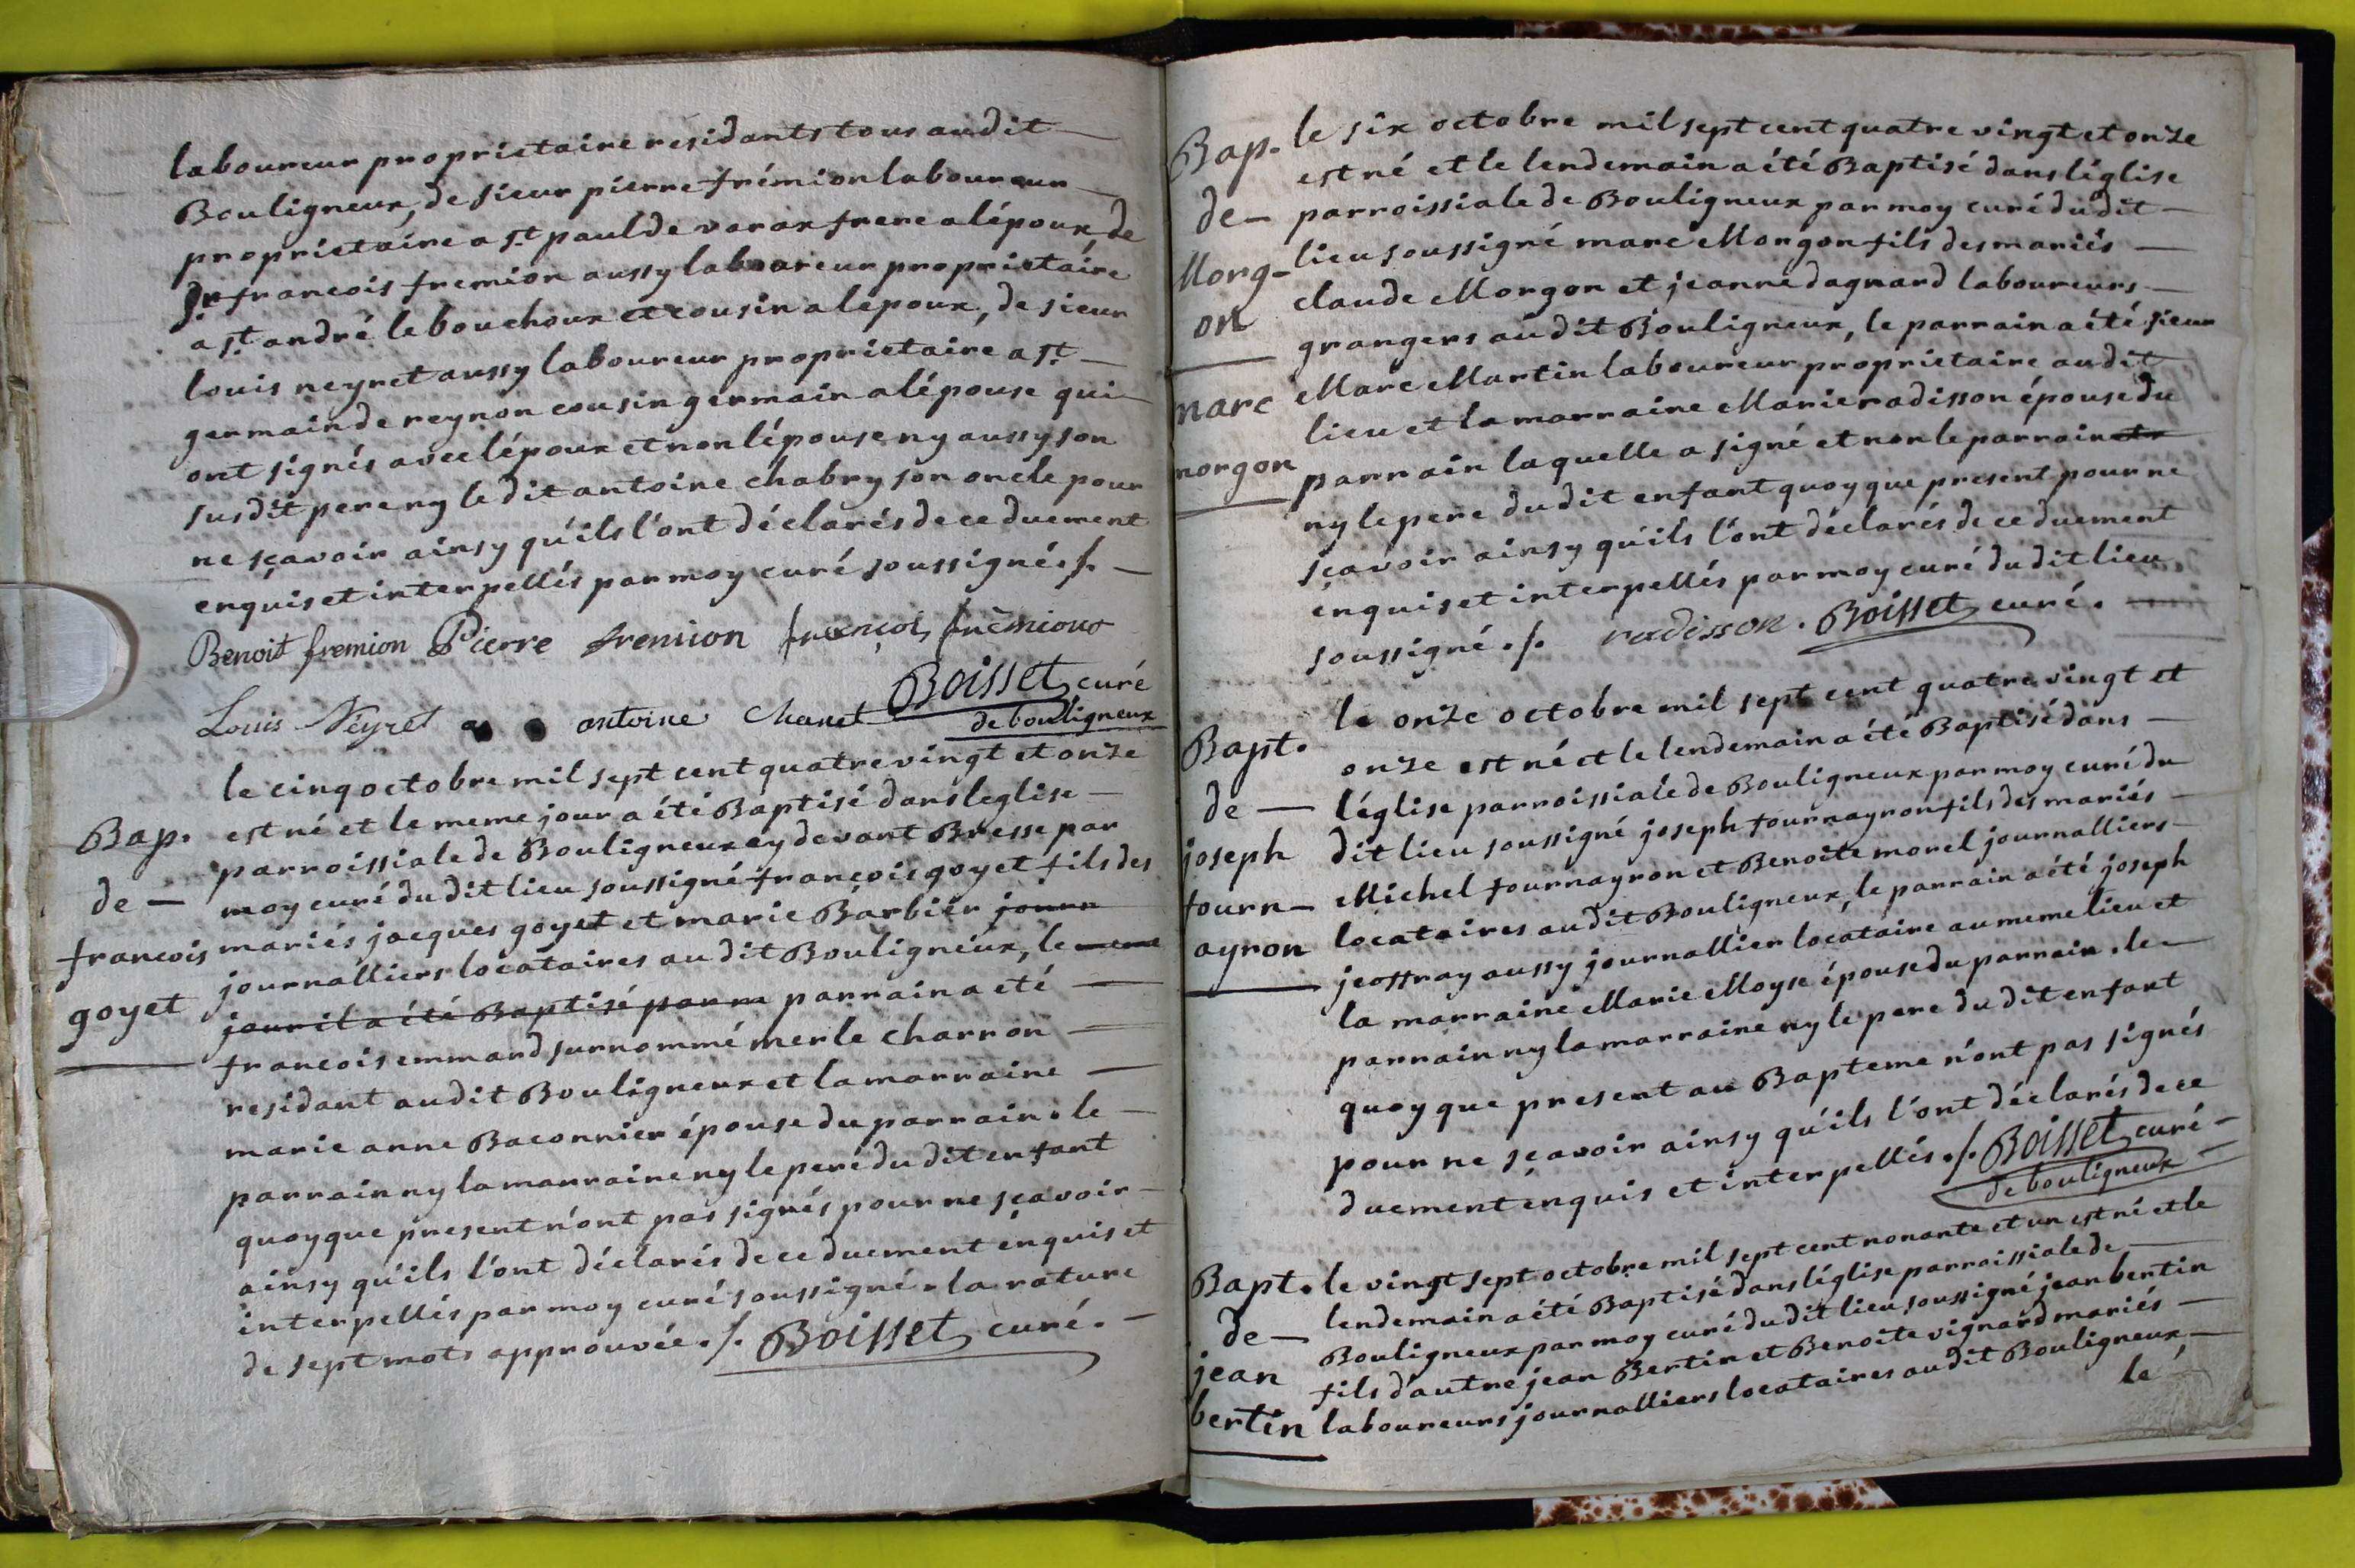 laboureur proprietaire residants tous audit
Bouligneux, de sieur pierre frémion laboureur
proprietaire a st paul de varax frere a lépoux, de
Sr francois fremion aussy laboureur proprietaire
a st andré le bouchoux et cousin a lepoux, de sieur
louis neyret aussy laboureur proprietaire a st
germain de reynon cousin germain a lépouse qui
ont signés avec lépoux et non lépouse ny aussy son
susdit pere ny le dit antoine chabry son oncle pour
ne sçavoir ainsy qu'ils l'ont déclarés de ce duement
enquis et interpellés par moy curé soussigné ./.
Benoit fremion Pierre fremion françois frémion
Louis Neyret antoine Chanet Boisset curé
de bouligneux
le cinq octobre mil sept cent quatre vingt et onze
Bap. est né et le meme jour a été Baptisé dans leglise
parroissiale de Bouligneux cy devant Bresse par
de moy curé du dit lieu soussigné francois goyet fils des
francois mariés jacques goyet et marie Barbier journ
journalliers locataires au dit Bouligneux, le meme
goyet jour il a été Baptisé par m parrain a eté
francois emmard surnommé merle charron
residant audit Bouligneux et la marraine
marie anne Baconnier épouse du parrain. le
parrain ny la marraine ny le pere du dit enfant
quoyque present n'ont pas signés pour ne sçavoir
ainsy qu'ils l'ont déclarés de ce duement enquis et
interpellés par moy curé soussigné. la rature
de sept mots approuvée ./. Boisset curé.
Bap. le six octobre mil sept cent quatre vingt et onze
est né et le lendemain a été Baptisé dans léglise
de parroissiale de Bouligneux par moy curé du dit
Morg- lieu soussigné marc Morgon fils des mariés
on claude Morgon et jeanne dagnard laboureurs
grangers audit Bouligneux, le parrain a été sieur
marc Marc Martin laboureur proprietaire audit
lieu et la marraine Marie radisson épouse du
morgon parrain laquelle a signé et non le parrain
ny le pere du dit enfant quoyque present pour ne
sçavoir ainsy qu'ils l'ont déclarés de ce duement
enquis et interpellés par moy curé du dit lieu
soussigné ./. radisson. Boisset curé.
le onze octobre mil sept cent quatre vingt et
Bapt. onze est né et le lendemain a été Baptisé dans
de léglise parroissiale de Bouligneux par moy curé du
joseph dit lieu soussigné joseph fournayron fils des mariés
fourn- Michel fournayron et Benoite morel journalliers
ayron locataires audit Bouligneux, le parrain a été joseph
jeoffray aussy journallier locataire au meme lieu et
la marraine Marie Moyse épouse du parrain. le
parrain ny la marraine ny le pere du dit enfant
quoy que present au Bapteme n'ont pas signés
pour ne sçavoir ainsy qu'ils l'ont déclarés de ce
duement enquis et interpellés ./. Boisset curé
de bouligneux
Bapt. le vingt sept octobre mil sept cent nonante et un est né et le
lendemain a été Baptisé dans léglise parroissiale de
de Bouligneux par moy curé du dit lieu soussigné jean bertin
jean fils d'autre jean Bertin et Benoite vignard mariés
bertin laboureurs journalliers locataires audit Bouligneux
le